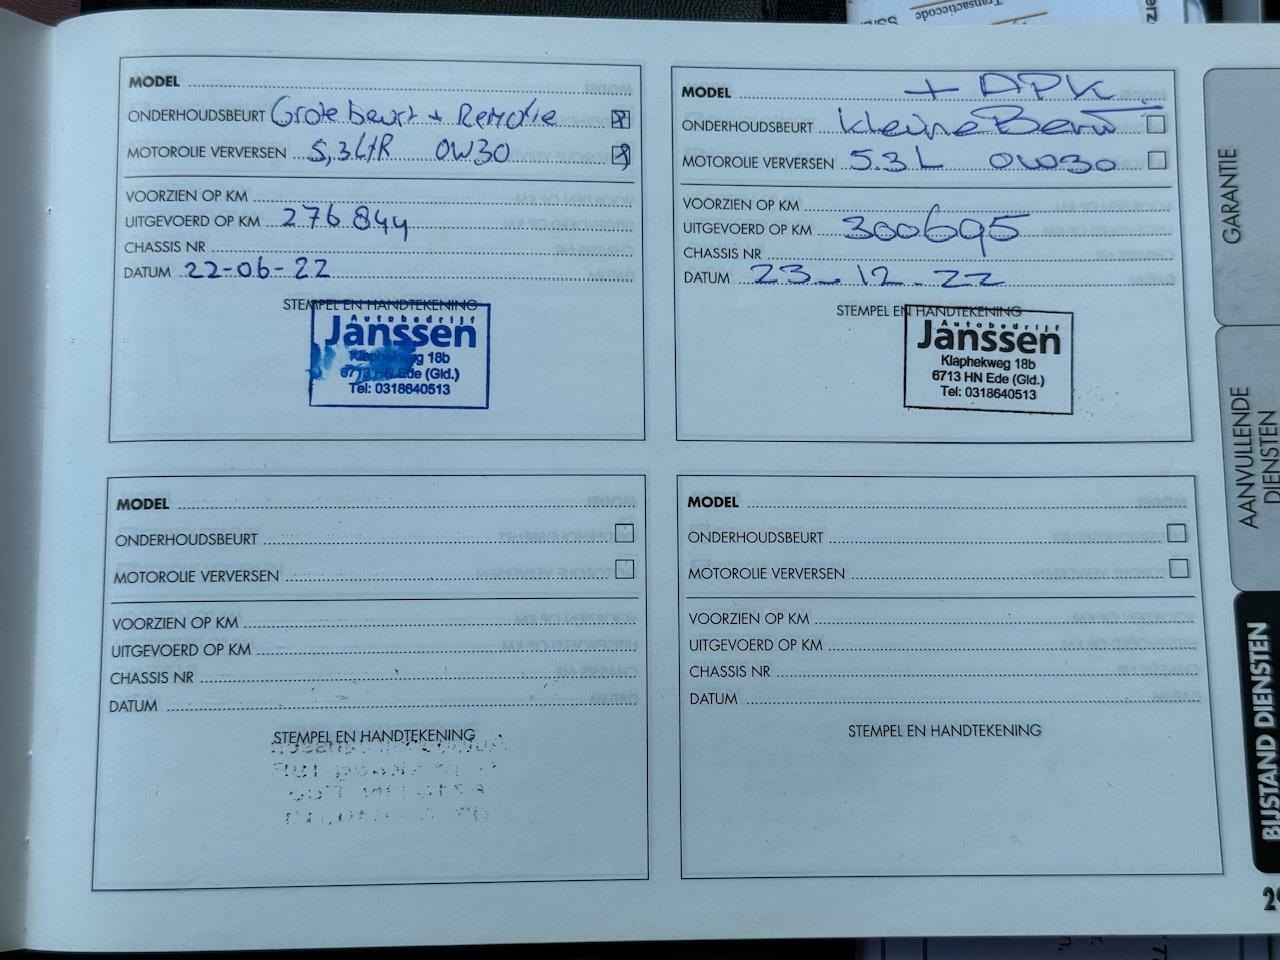 Transactiecode
MODEL
ONDERHOUDSBEURT Grote beurt + Remolie
MOTOROLIE VERVERSEN 5,3 LtR 0W30
VOORZIEN OP KM
UITGEVOERD OP KM 276 844
CHASSIS NR
DATUM 22-06-22
STEMPEL EN HANDTEKENING
Autobedrijf
Janssen
Klaphekweg 18b
6713 HN Ede (Gld.)
Tel: 0318640513
MODEL + APK
ONDERHOUDSBEURT kleine Beurt
MOTOROLIE VERVERSEN 5.3 L 0W30
VOORZIEN OP KM
UITGEVOERD OP KM 300695
CHASSIS NR
DATUM 23-12-22
STEMPEL EN HANDTEKENING
Autobedrijf
Janssen
Klaphekweg 18b
6713 HN Ede (Gld.)
Tel: 0318640513
MODEL
ONDERHOUDSBEURT
MOTOROLIE VERVERSEN
VOORZIEN OP KM
UITGEVOERD OP KM
CHASSIS NR
DATUM
STEMPEL EN HANDTEKENING
MODEL
ONDERHOUDSBEURT
MOTOROLIE VERVERSEN
VOORZIEN OP KM
UITGEVOERD OP KM
CHASSIS NR
DATUM
STEMPEL EN HANDTEKENING
GARANTIE
AANVULLENDE
DIENSTEN
BIJSTAND DIENSTEN